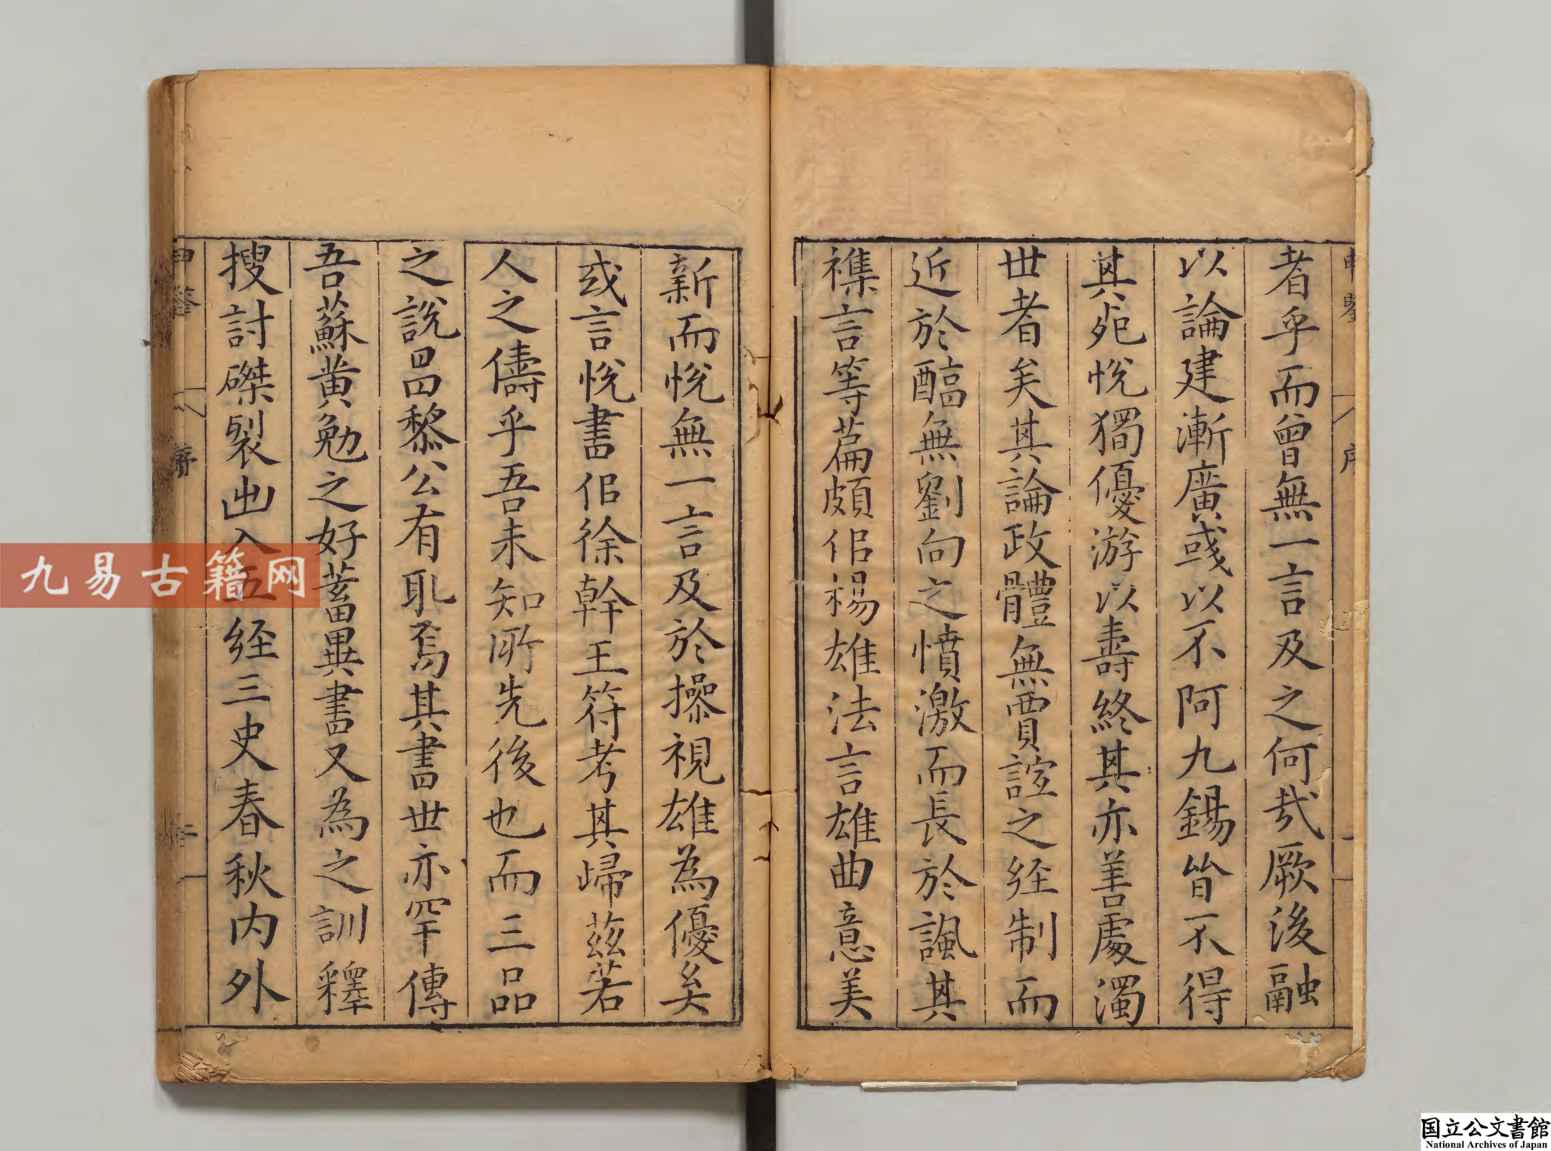 者乎而曾無一言及之何㢤厥後融
以論建漸廣彧以不阿九錫皆不得
其死悅獨優游以壽終其亦善處濁
世者矣其論政體無賈誼之經制而
近於醇無劉向之憤激而長於諷其
襍言等篇頗佀楊雄法言雄曲意美
新而悅無一言及於操視雄為優矣
或言悅書佀徐幹王符考其歸茲若
人之儔乎吾未知所先後也而三品
之說昌黎公有取焉其書世亦罕傳
吾蘇黃勉之好蓄異書又為之訓釋
搜討磔裂出入五經三史春秋内外
序
九易古籍网
国立公文書館
National Archives of Japan